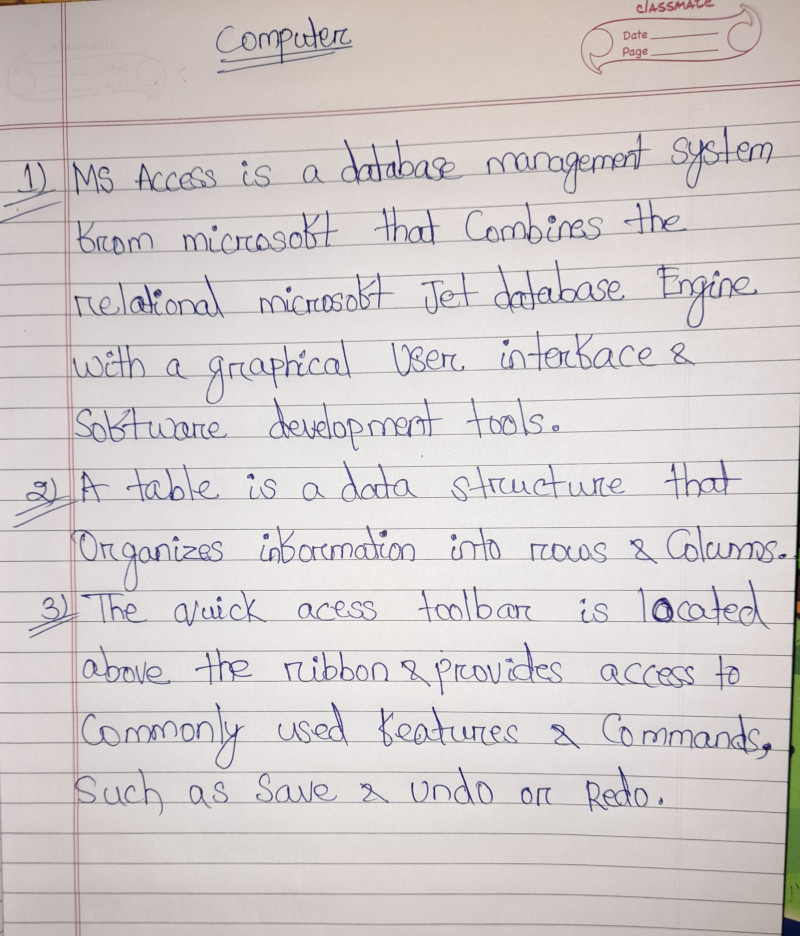 classmate
Date
Page
Computer
1) MS Access is a database management system
from microsoft that Combines the
relational microsoft Jet database Engine
with a graphical User interface &
Software development tools.
2) A table is a data structure that
Organizes information into rows & Colums.
3) The quick acess toolbar is located
above the ribbon & provides access to
Commonly used features & Commands,
Such as Save & Undo or Redo.